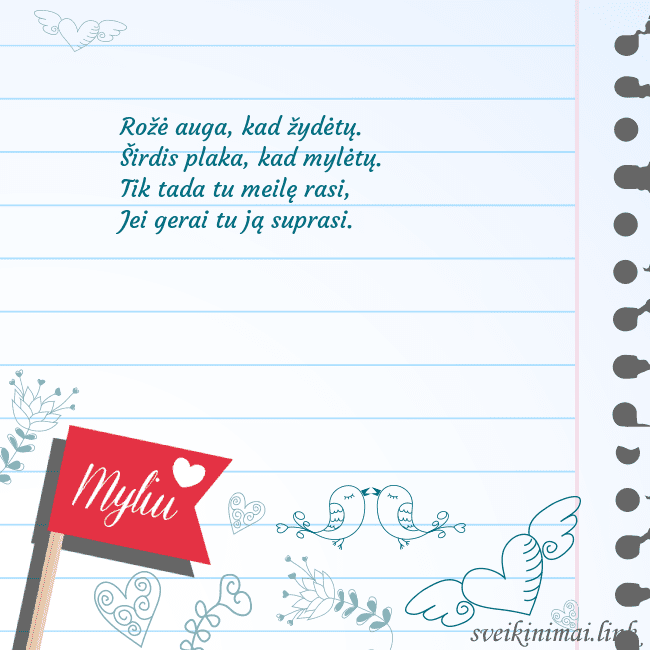 Rožė auga, kad žydėtų.
Širdis plaka, kad mylėtų.
Tik tada tu meilę rasi,
Jei gerai tu ją suprasi.
Myliu
sveikinimai.link